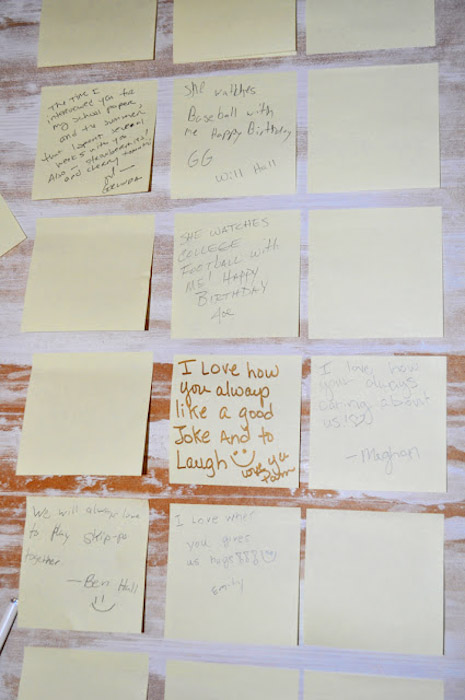 The time I
interviewed you for
my school paper,
and the summer
that I spent several
weeks with you
Also – strawberries!
and cherry
She watches
Baseball with
me Happy Birthday
GG
Will Hall
SHE WATCHES
COLLEGE
FOOTBALL WITH
ME! HAPPY
BIRTHDAY
Joe
I Love how
you always
like a good
Joke And to
Laugh
Love ya
I love how
you always
caring about
us!
- Meghan
We will always love
to play skip-bo
together
- Ben Hall
I Love when
you gives
us hugs
Emily